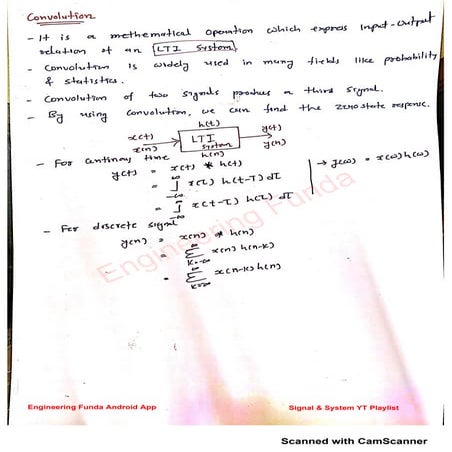 Convolution
- It is a methematical operation which express Input-Output
relation of an LTI System.
- Convolution is widely used in many fields like probability
& statistics.
- Convolution of two signals produces a third signal.
- By using convolution, we can find the zero state response.
h(t)
x(t) LTI System y(t)
x(n) h(n) y(n)
- For continuous time
y(t) = x(t) * h(t) → y(ω) = x(ω) h(ω)
= ∫_{-∞}^{∞} x(τ) h(t-τ) dτ
= ∫_{-∞}^{∞} x(t-τ) h(τ) dτ
- For discrete signal
y(n) = x(n) * h(n)
= Σ_{k=-∞}^{∞} x(n) h(n-k)
= Σ_{k=-∞}^{∞} x(n-k) h(n)
Engineering Funda
Engineering Funda Android App Signal & System YT Playlist
Scanned with CamScanner